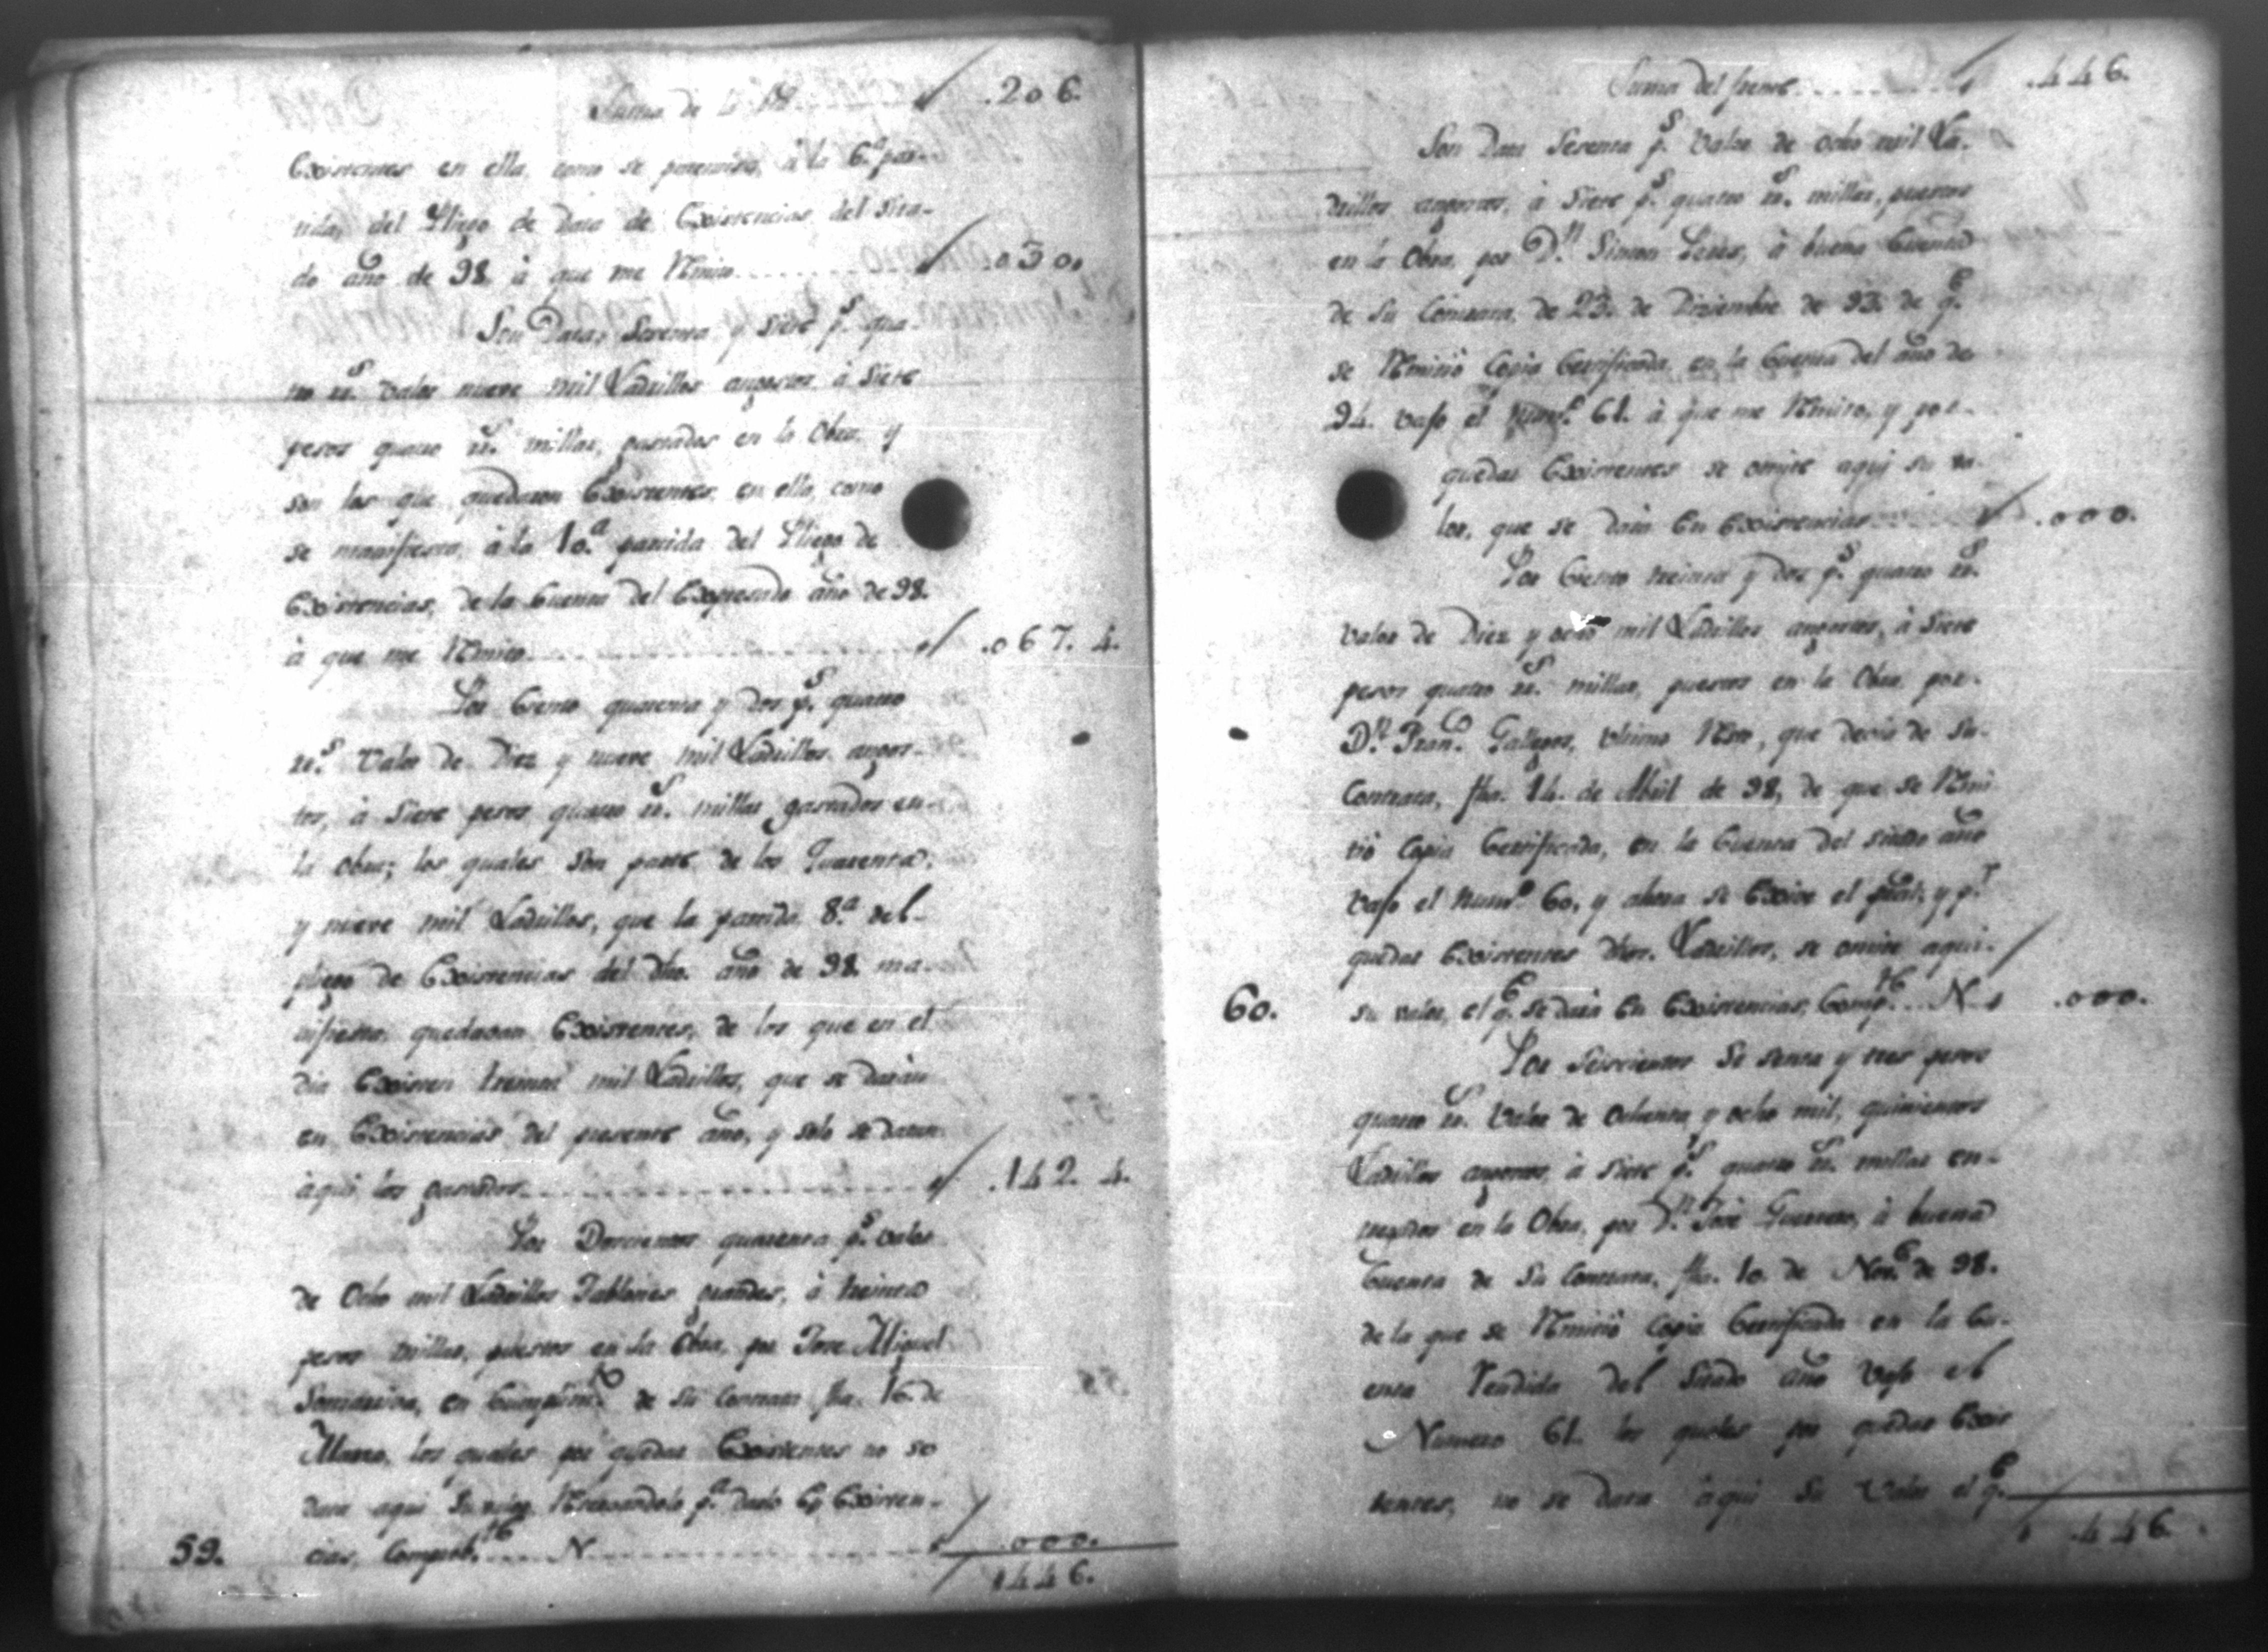 Suma de la 206.
Existentes en ella, como se patentiza, à la 6.ª par-
tida, del Pliego de Data de Existencias del cita-
do año de 98. à que me Rmito .030.
Son Data, Sesenta y siete p.s qua-
tro rr.s valor nueve mil Ladrillos angostos, à siete
pesos quatro rr.s millar, gastados en la Obra, y
son los que quedaron Existentes en ella, como
se manifiesta, à la 10.ª partida del Pliego de
Existencias, de la Cuenta del Expresado año de 98.
à que me Rmito .067. 4.
Por Ciento quarenta y dos p.s quatro
rr.s valor de Diez y nueve mil Ladrillos angos-
tos, à siete pesos quatro rr.s millar gastados en
la Obra; los quales son parte de los Quarenta
y nueve mil Ladrillos, que la partida 8.ª del
pliego de Existencias del dho. año de 98. ma-
nifiesta, quedaban Existentes, de los que en el
dia Existen treinta mil Ladrillos, que se daràn
en Existencias del presente año, y solo se datan
aqui los gastados .142. 4.
Por Doscientos quarenta p.s valor
de Ocho mil Ladrillos Tablones grandes, à treinta
pesos millar, puestos en la Obra, por Jose Miguel
en Cumplim.to de su Contrata fha. 16. de
Marzo, los quales por quedar Existentes no se
data aqui su valor, Rservandolo p.a darlo En Existen-
59. cias, Comprob.te N .000.
446.
Suma del frente 446.
Son Data Sesenta p.s valor de ocho mil La-
drillos angostos, à siete p.s quatro rr.s millar, puestos
en la Obra, por D.n Simon à buena Cuenta
de su Contrata, de 23. de Diziembre de 93. de q.e
se Rmitiò Copia Certificada, en la Cuenta del año de
94. vajo el Num.o 61. à que me Rmito, y por
quedar Existentes se omite aqui su va-
lor, que se darà En Existencias .000.
Por Ciento treinta y dos p.s quatro rr.s
valor de Diez y ocho mil Ladrillos angostos, à siete
pesos quatro rr.s millar, puestos en la Obra por
D.n Fran.co Gallegos, ultimo Rsto, que debia de su
Contrata, fha. 14. de Abril de 98, de que se Rmi-
tiò Copia Certificada, en la Cuenta del citado año
vajo el Num.o 60, y ahora se Exive el y p.r
quedar Existentes dhos. Ladrillos, se omite aqui
60. su valor, el q.e se darà En Existencias, Comp.te N .000.
Por Seiscientos Sesenta y tres pesos
quatro rr.s valor de Ochenta y ocho mil, quinientos
Ladrillos angostos à siete p.s quatro rr.s millar en-
tregados en la Obra, por D.n Josè Guerrero, à buena
Cuenta de su Contrata, fha. 10. de Nov.e de 98.
de la que se Rmitiò Copia Certificada en la Cu-
enta Rendida del citado año vajo el
Numero 61. los quales por quedar Exis-
tentes, no se data aqui su valor el q.e
446.